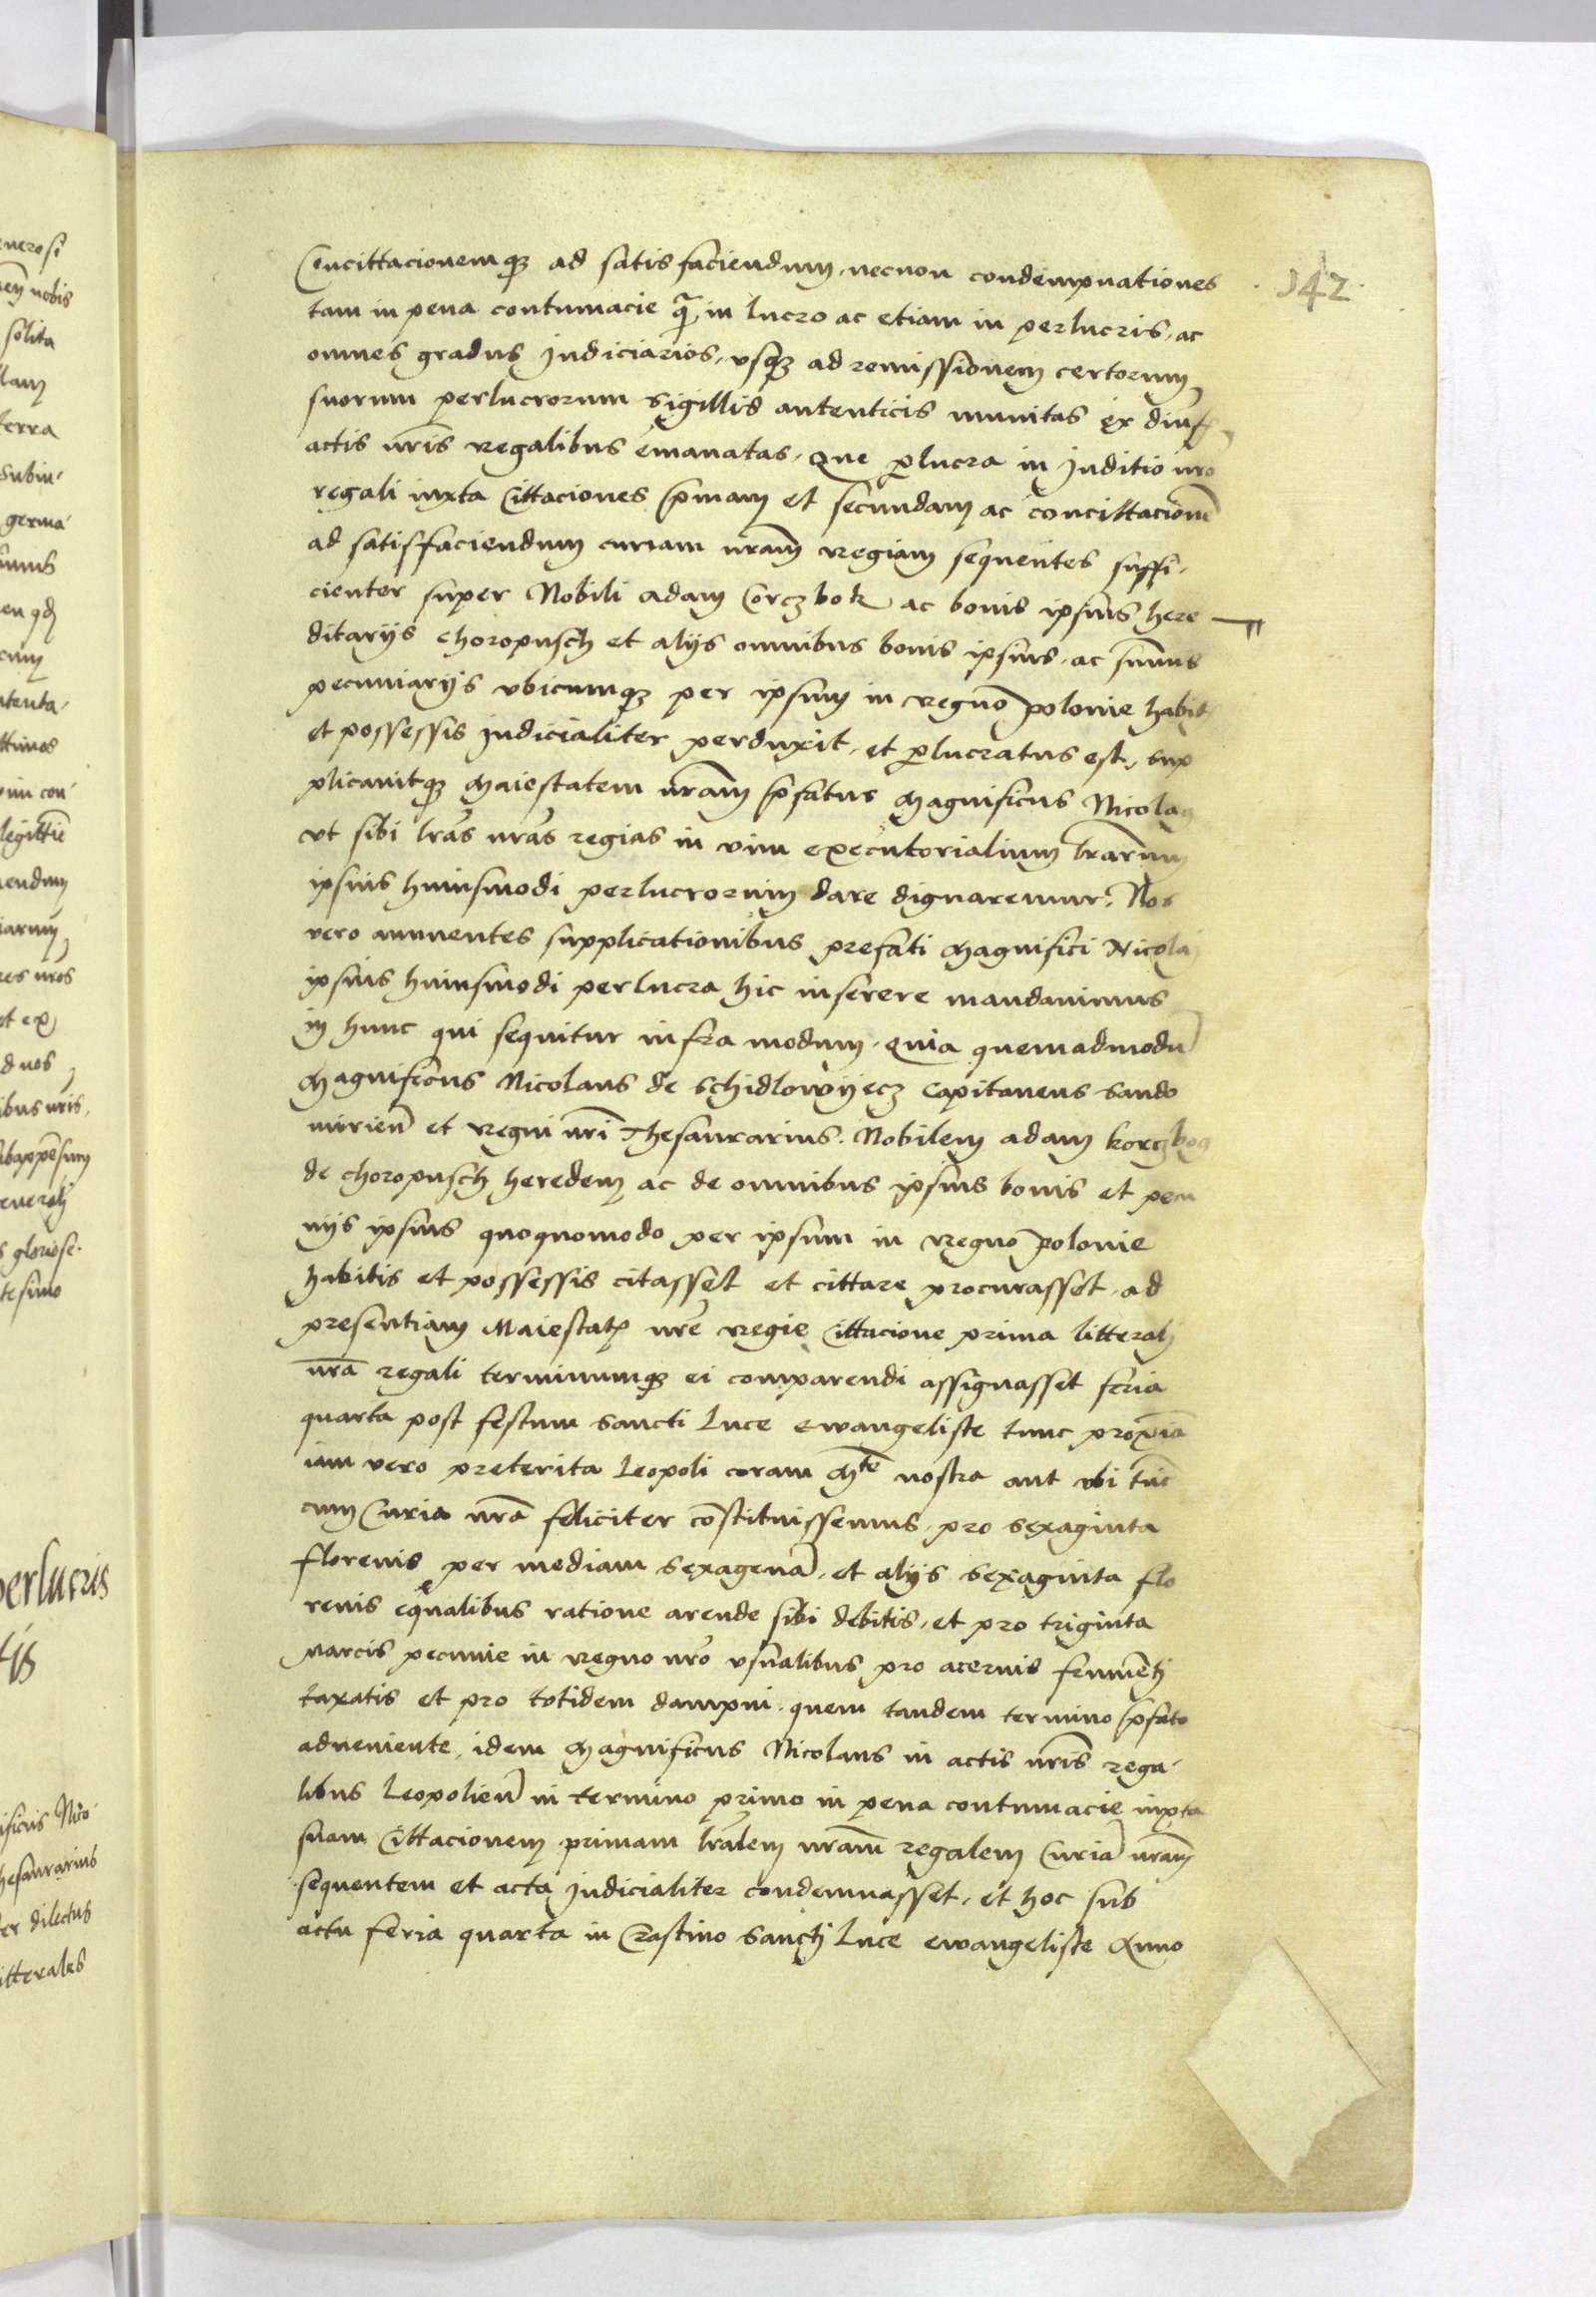 142
Concittacionemq3 ad satisfaciendum, necnon condempnationes
tam in pena contumacie q̃ in lucro ac etiam in perlucris, ac
omnes gradus Judiciarios, vsq3 ad remissionem certorum
suorum perlucrorum sigillis autenticis munitas ex
actis nr̃is regalibus emanatas, Que ꝑlucra in Juditio nr̃o
regali iuxta Cittaciones p̃mam et secundam ac concittacionẽ
ad satisfaciendum curiam nr̃am regiam sequentes suffi-
cienter super Nobili adam Corczbok ac bonis ipsius here
ditarijs choropusch et alijs omnibus bonis ipsius, ac sum̃is
pecuniarijs vbicumq3 per ipsum in regno polonie habit
et possessis Judicialiter perduxit, et ꝑlucratus est, sup
plicauitq3 Maiestatem nr̃am p̃fatus Magnificus Nicolaus
vt sibi lr̃as nr̃as regias in vim executorialium lr̃arum
ipsius huiusmodi perlucrorum dare dignaremur. Nos
vero annuentes supplicationibus prefati Magnifici Nicolai
ipsius huiusmodi perlucra hic inserere mandauimus
in hunc qui sequitur infra modum. Quia quemadmodũ
Magnificus Nicolaus de Schidlowijecz Capitaneus Sando
mirieñ et regni nr̃i Thesaurarius. Nobilem adam korczbog
de choropusch heredem ac de omnibus ipsius bonis et pecu
nijs ipsius quoquomodo per ipsum in regno polonie
habitis et possessis citasset et cittare procurasset, ad
presentiam Maiestatꝭ nr̃e regie Cittacione prima litterali
nr̃a regali terminumq3 ei comparendi assignasset feria
quarta post festum sancti Luce ewangeliste tunc proxĩa
iam vero preterita Leopoli coram Mte nostra aut vbi tũc
cum Curia nr̃a feliciter cõstituissemus, pro sexaginta
florenis per mediam sexagenã, et alijs sexaginta flo
renis equalibus ratione arende sibi debitis, et pro triginta
marcis pecunie in regno nr̃o vsualibus pro aceruis frumẽti
taxatis et pro totidem dampni. quem tandem termino p̃fato
adueniente, idem Magnificus Nicolaus in actis nr̃is rega-
libus Leopolieñ in termino primo in pena contumacie iuxta
suam Cittacionem primam lr̃alem nr̃am regalem Curiã nr̃am
sequentem et acta Judicialiter condemnasset, et hoc sub
actu feria quarta in Crastino Sancti Luce ewangeliste Anno
enerosi
nobis
solita
terra
subin-
germa-
atenta-
con-
legittĩe
endum
iarum
nr̃os
et ex
d nos
ibus nr̃is
gloriose.
tesimo
perlucris
ificus Nico-
hesaurarius
er dilectus
itterales